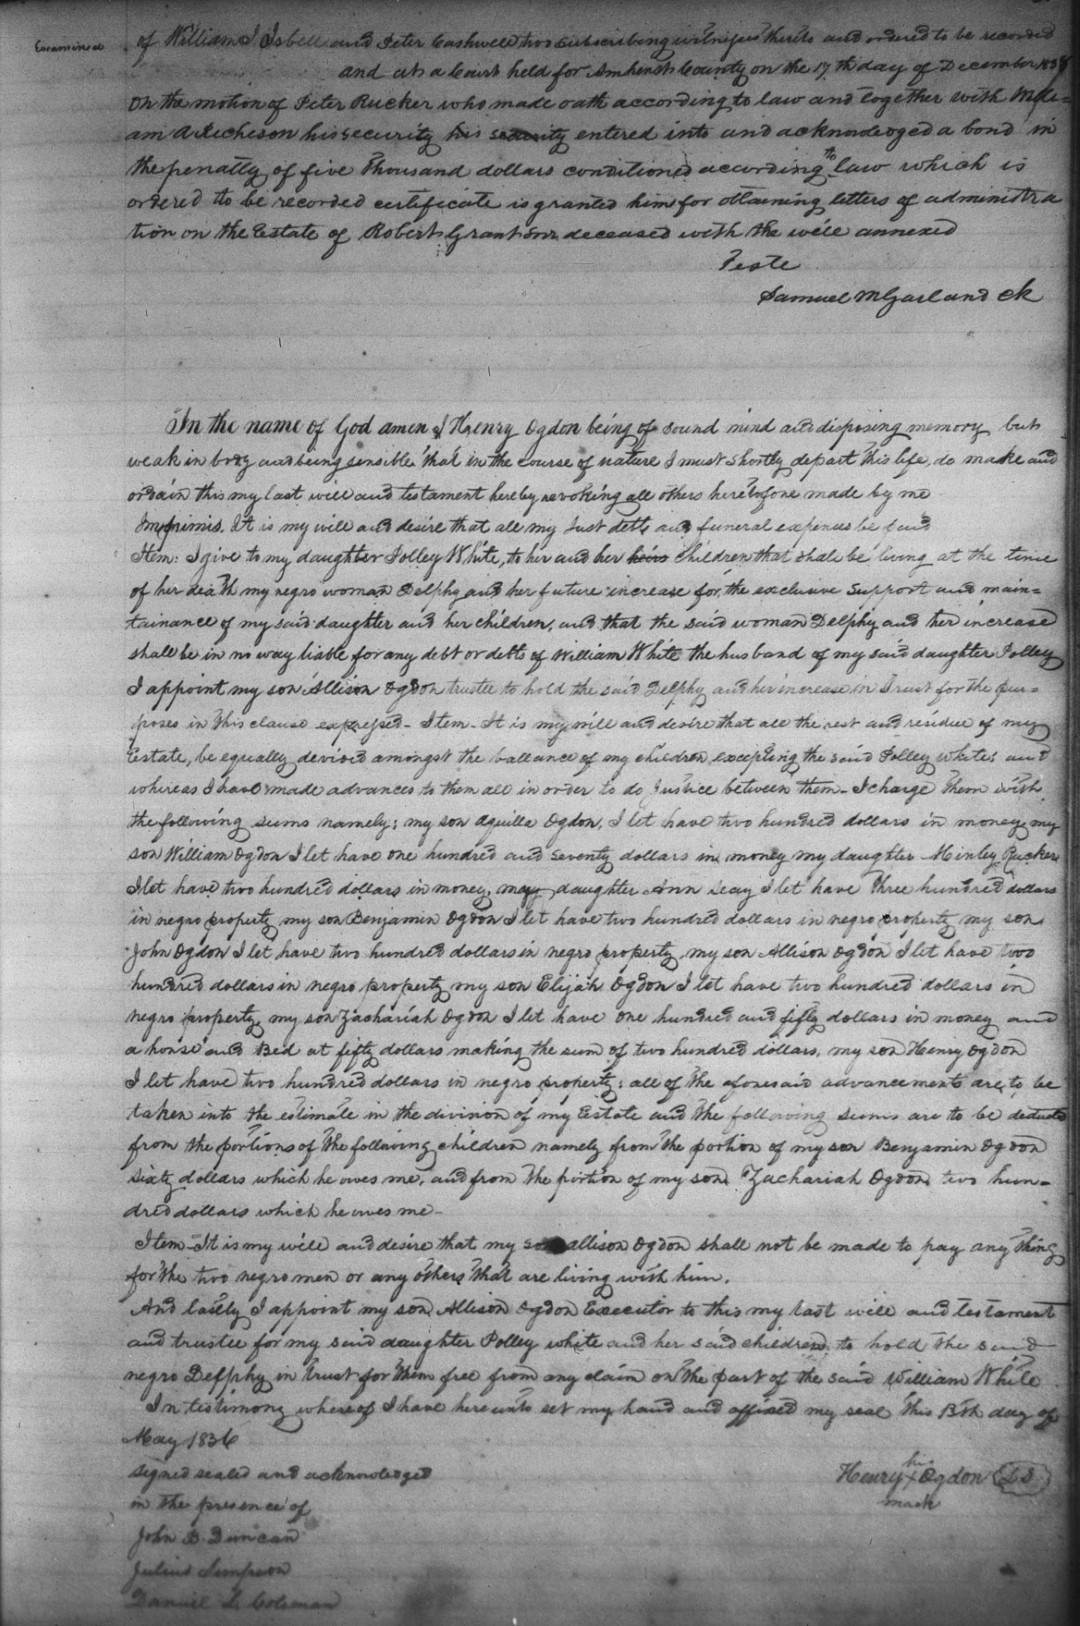 Examined
of William J Isbell and Peter Cashwell two subscribing witnesses thereto and ordered to be recorded
and at a Court held for Amherst County on the 17th day of December 1838
On the motion of Peter Rucker who made oath according to law and together with Willi=
am A Richeson his security his security entered into and acknowledged a bond in
the penalty of five thousand dollars conditioned according to law which is
ordered to be recorded certificate is granted him for obtaining letters of administra
tion on the Estate of Robert Grant Snr deceased with the will annexed
Teste
Samuel M Garland Ck
In the name of God amen I Henry Ogdon being of sound mind and disposing memory but
weak in body and being sensible that in the course of nature I must shortly depart this life, do make and
ordain this my last will and testament hereby revoking all others heretofore made by me
Imprimis. It is my will and desire that all my just debts and funeral expences be paid
Item: I give to my daughter Polley White, to her and her heirs Children that shall be living at the time
of her death my negro woman Delphy and her future increase for, the exclusive support and main=
tainance of my said daughter and her children, and that the said woman Delphy and her increase
shall be in no way liable for any debt or debts of William White the husband of my said daughter Polley
I appoint my son Allison Ogdon trustee to hold the said Delphy and her increase in Trust for the pur=
poses in this clause expressed - Item - It is my will and desire that all the rest and residue of my
Estate, be equally devided amongst the ballance of my children, excepting the said Polley White; and
whereas I have made advances to them all in order to do Justice between them - I charge them with
the following sums namely; my son Aquilla Ogdon, I let have two hundred dollars in money, my
son William Ogdon I let have one hundred and seventy dollars in money my daughter Minley Rucker
I let have two hundred dollars in money, may daughter Ann Seay I let have three hundred dollars
in negro property my son Benjamin Ogdon I let have two hundred dollars in negro property my son
John Ogdon I let have two hundred dollars in negro property my son Allison Ogdon I let have two
hundred dollars in negro property my son Elijah Ogdon I let have two hundred dollars in
negro property, my son Zachariah Ogdon I let have one hundred and fifty dollars in money and
a horse and Bed at fifty dollars making the sum of two hundred dollars, my son Henry Ogdon
I let have two hundred dollars in negro property; all of the aforesaid advancements are to be
taken into the estimate in the division of my Estate and the following sums are to be deducted
from the portions of the following children namely from the portion of my son Benjamin Ogdon
sixty dollars which he owes me, and from the portion of my son Zachariah Ogdon two hun=
dred dollars which he owes me -
Item - It is my will and desire that my son Allison Ogdon shall not be made to pay any thing
for the two negro men or any others that are living with him.
And lastly I appoint my son Allison Ogdon Executor to this my last will and testament
and trustee for my said daughter Polley White and her said children to hold the said
negro Delphy in trust for them free from any claim on the part of the said William White
In testimony whereof I have hereunto set my hand and affixed my seal this 13th day of
May 1836
signed sealed and acknowledged
in the presence of
his
Henry X Ogdon L S
mark
John B Duncan
Julius Simpson
Daniel L Coleman